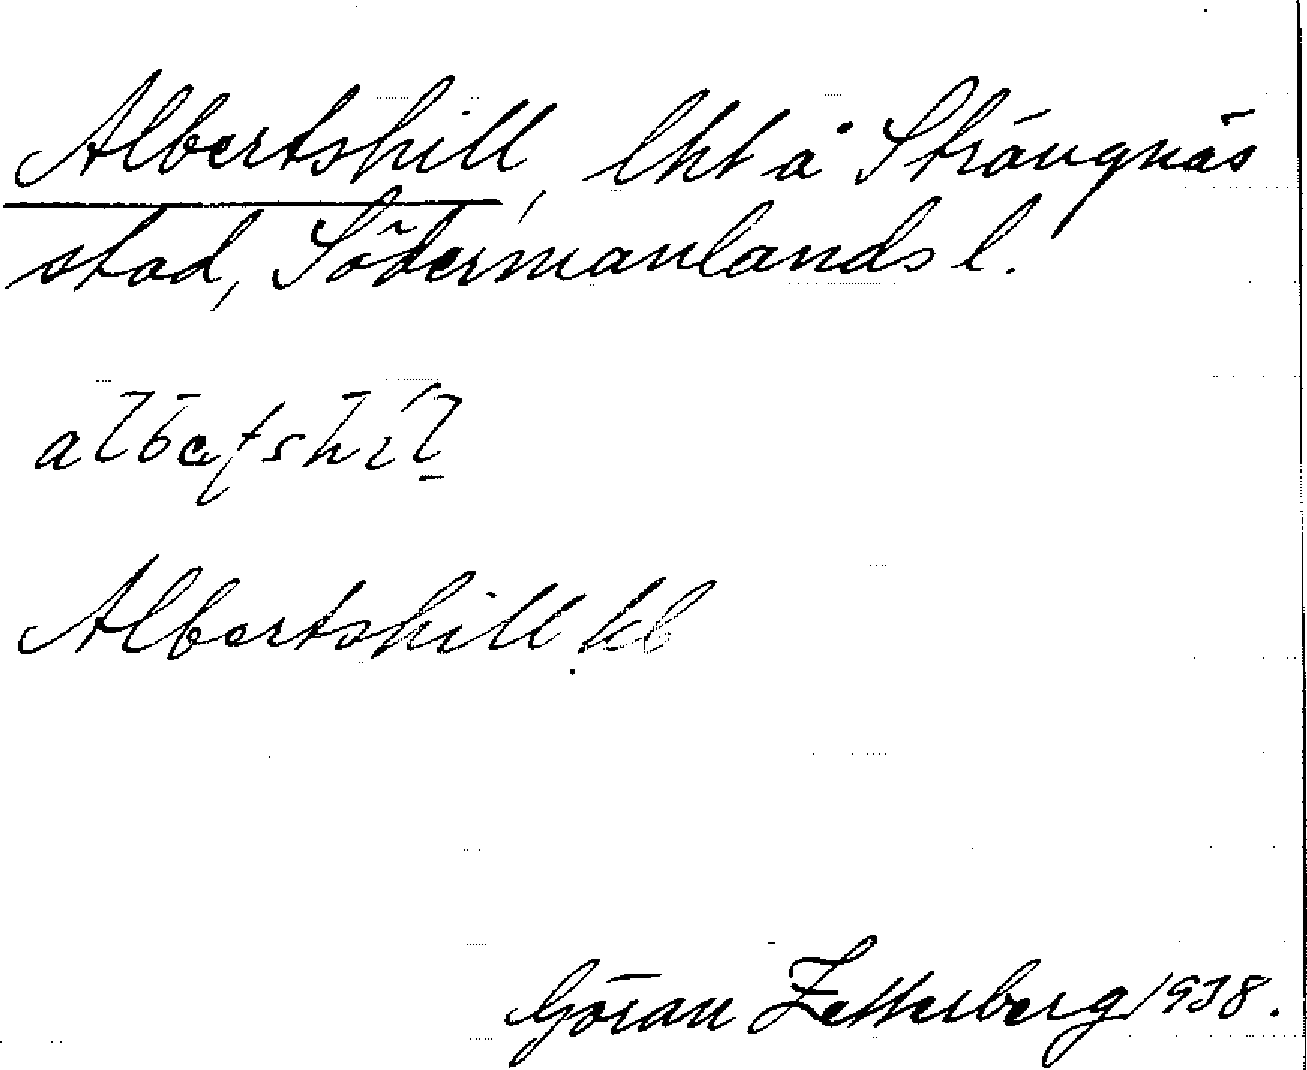 Albertshill, lht å Strängnäs
stad, Södermanlands l.
Albertshill kb
Göran Zetterberg 1938.